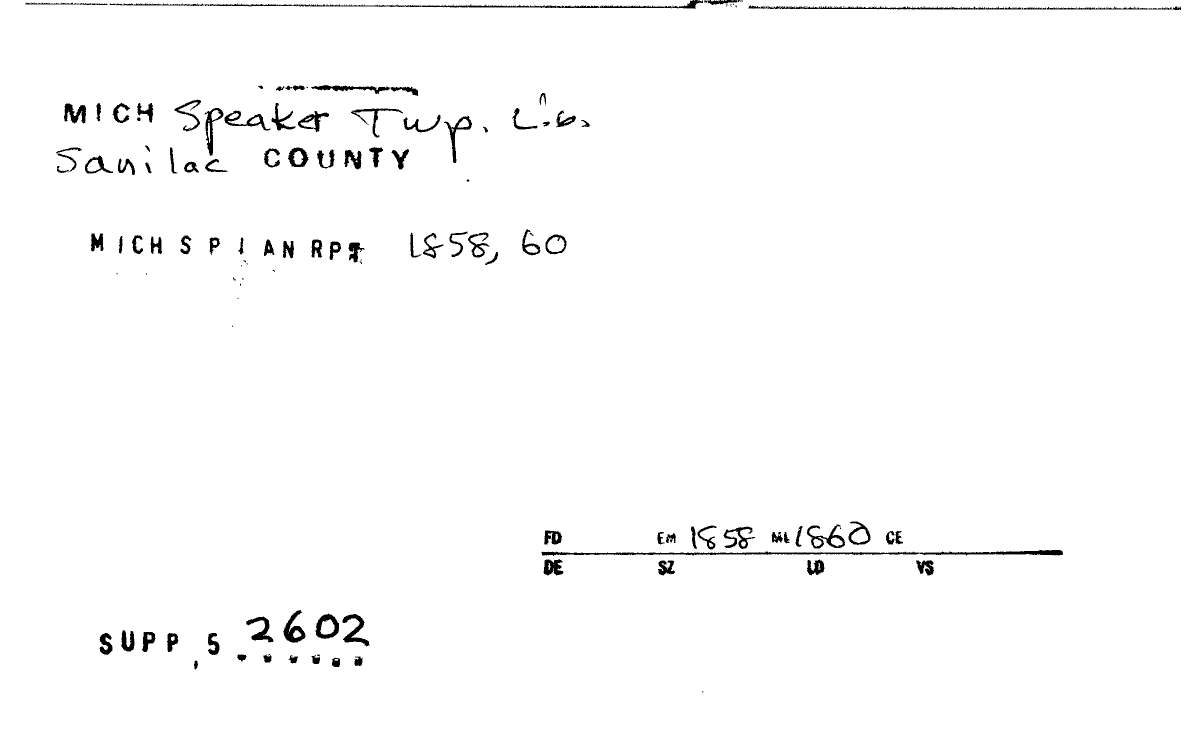 MICH Speaker Twp. Lib.
Sanilac COUNTY
MICH S P I AN RPT 1858, 60
FD EM 1858 ML 1860 CE
DE SZ LD VS
SUPP, 5 2602